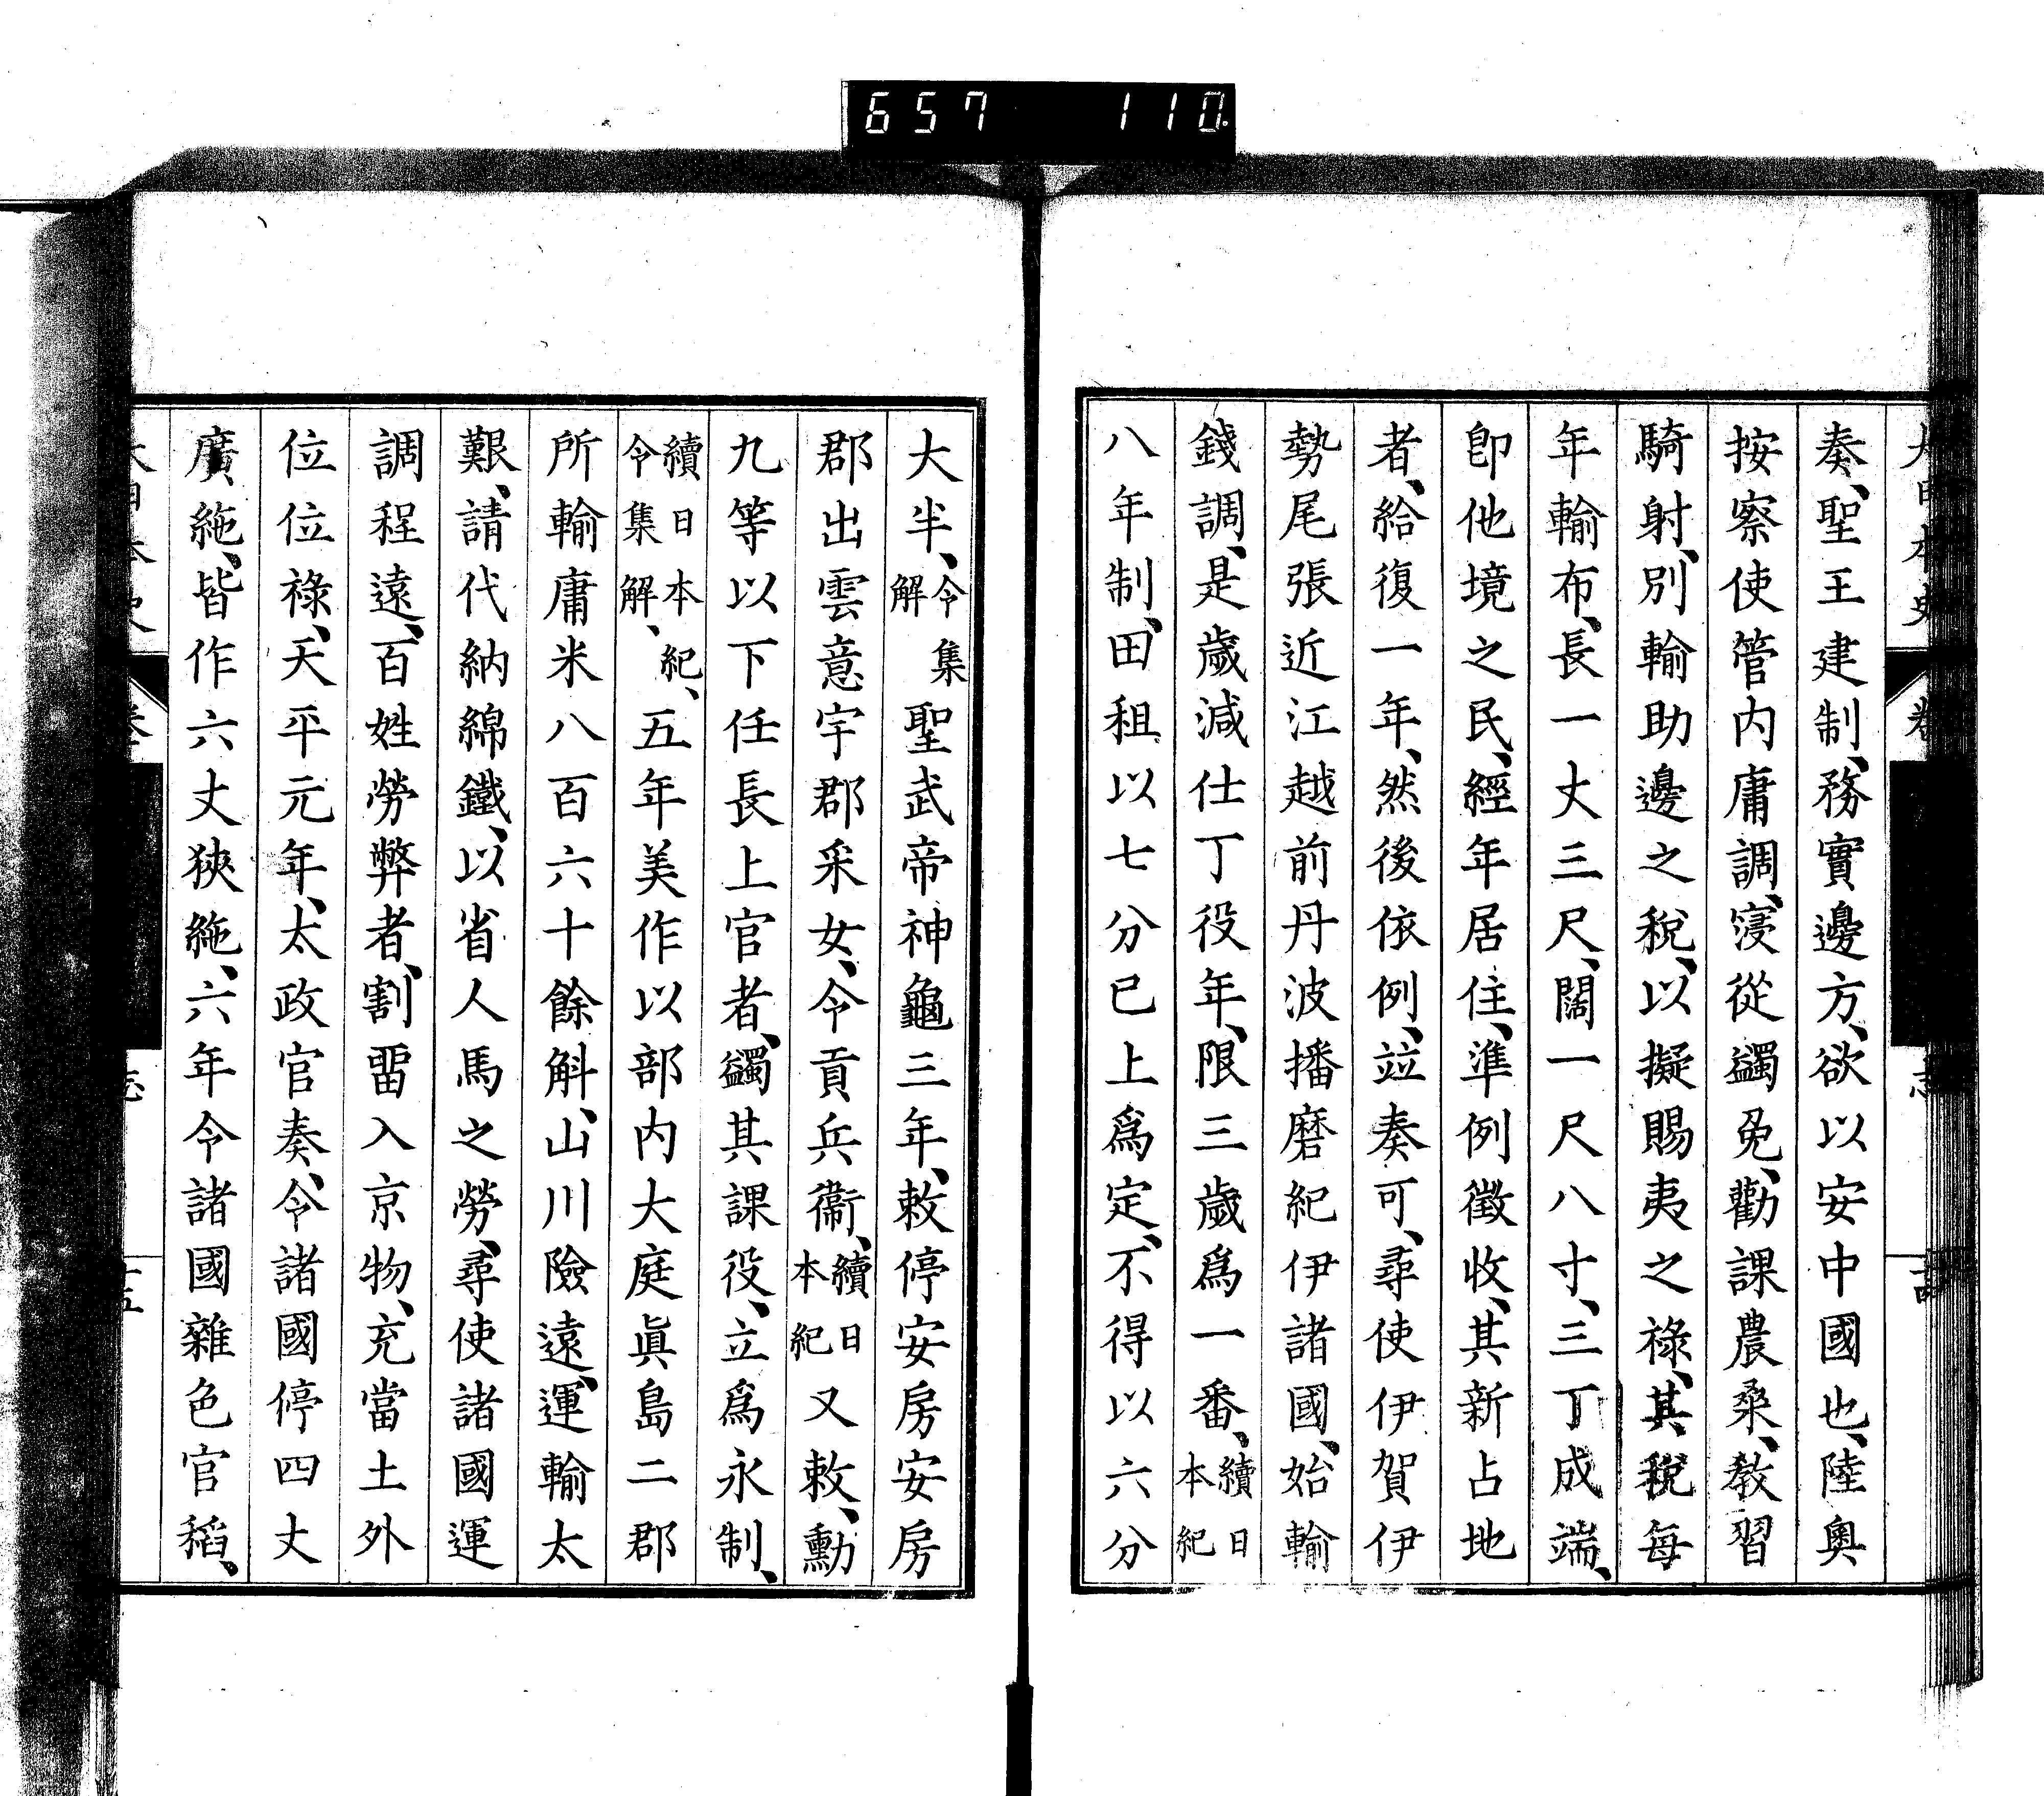 657 110
奏、聖王建制、務實邊方、欲以安中國也、陸奧
按察使管内庸調、寖從蠲免、勸課農桑、教習
騎射、別輸助邊之稅、以擬賜夷之祿、其稅每
年輸布、長一丈三尺、闊一尺八寸、三丁成端、
卽他境之民、經年居住、準例徵收、其新占地
者、給復一年、然後依例、竝奏可、尋使伊賀伊
勢尾張近江越前丹波播磨紀伊諸國、始輸
錢調、是歲減仕丁役年、限三歲爲一番、續日本紀
八年制、田租以七分已上爲定、不得以六分
大半、令集解 聖武帝神龜三年、敕停安房安房
郡出雲意宇郡釆女、令貢兵衞、續日本紀又敕、勳
九等以下任長上官者、蠲其課役、立爲永制、
續日本紀、令集解、五年美作以部内大庭眞島二郡
所輸庸米八百六十餘斛、山川險遠、運輸太
艱、請代納綿鐵、以省人馬之勞、尋使諸國運
調程遠、百姓勞弊者、割畱入京物、充當土外
位位祿、天平元年、太政官奏、令諸國停四丈
廣絁、皆作六丈狹絁、六年令諸國雜色官稻、